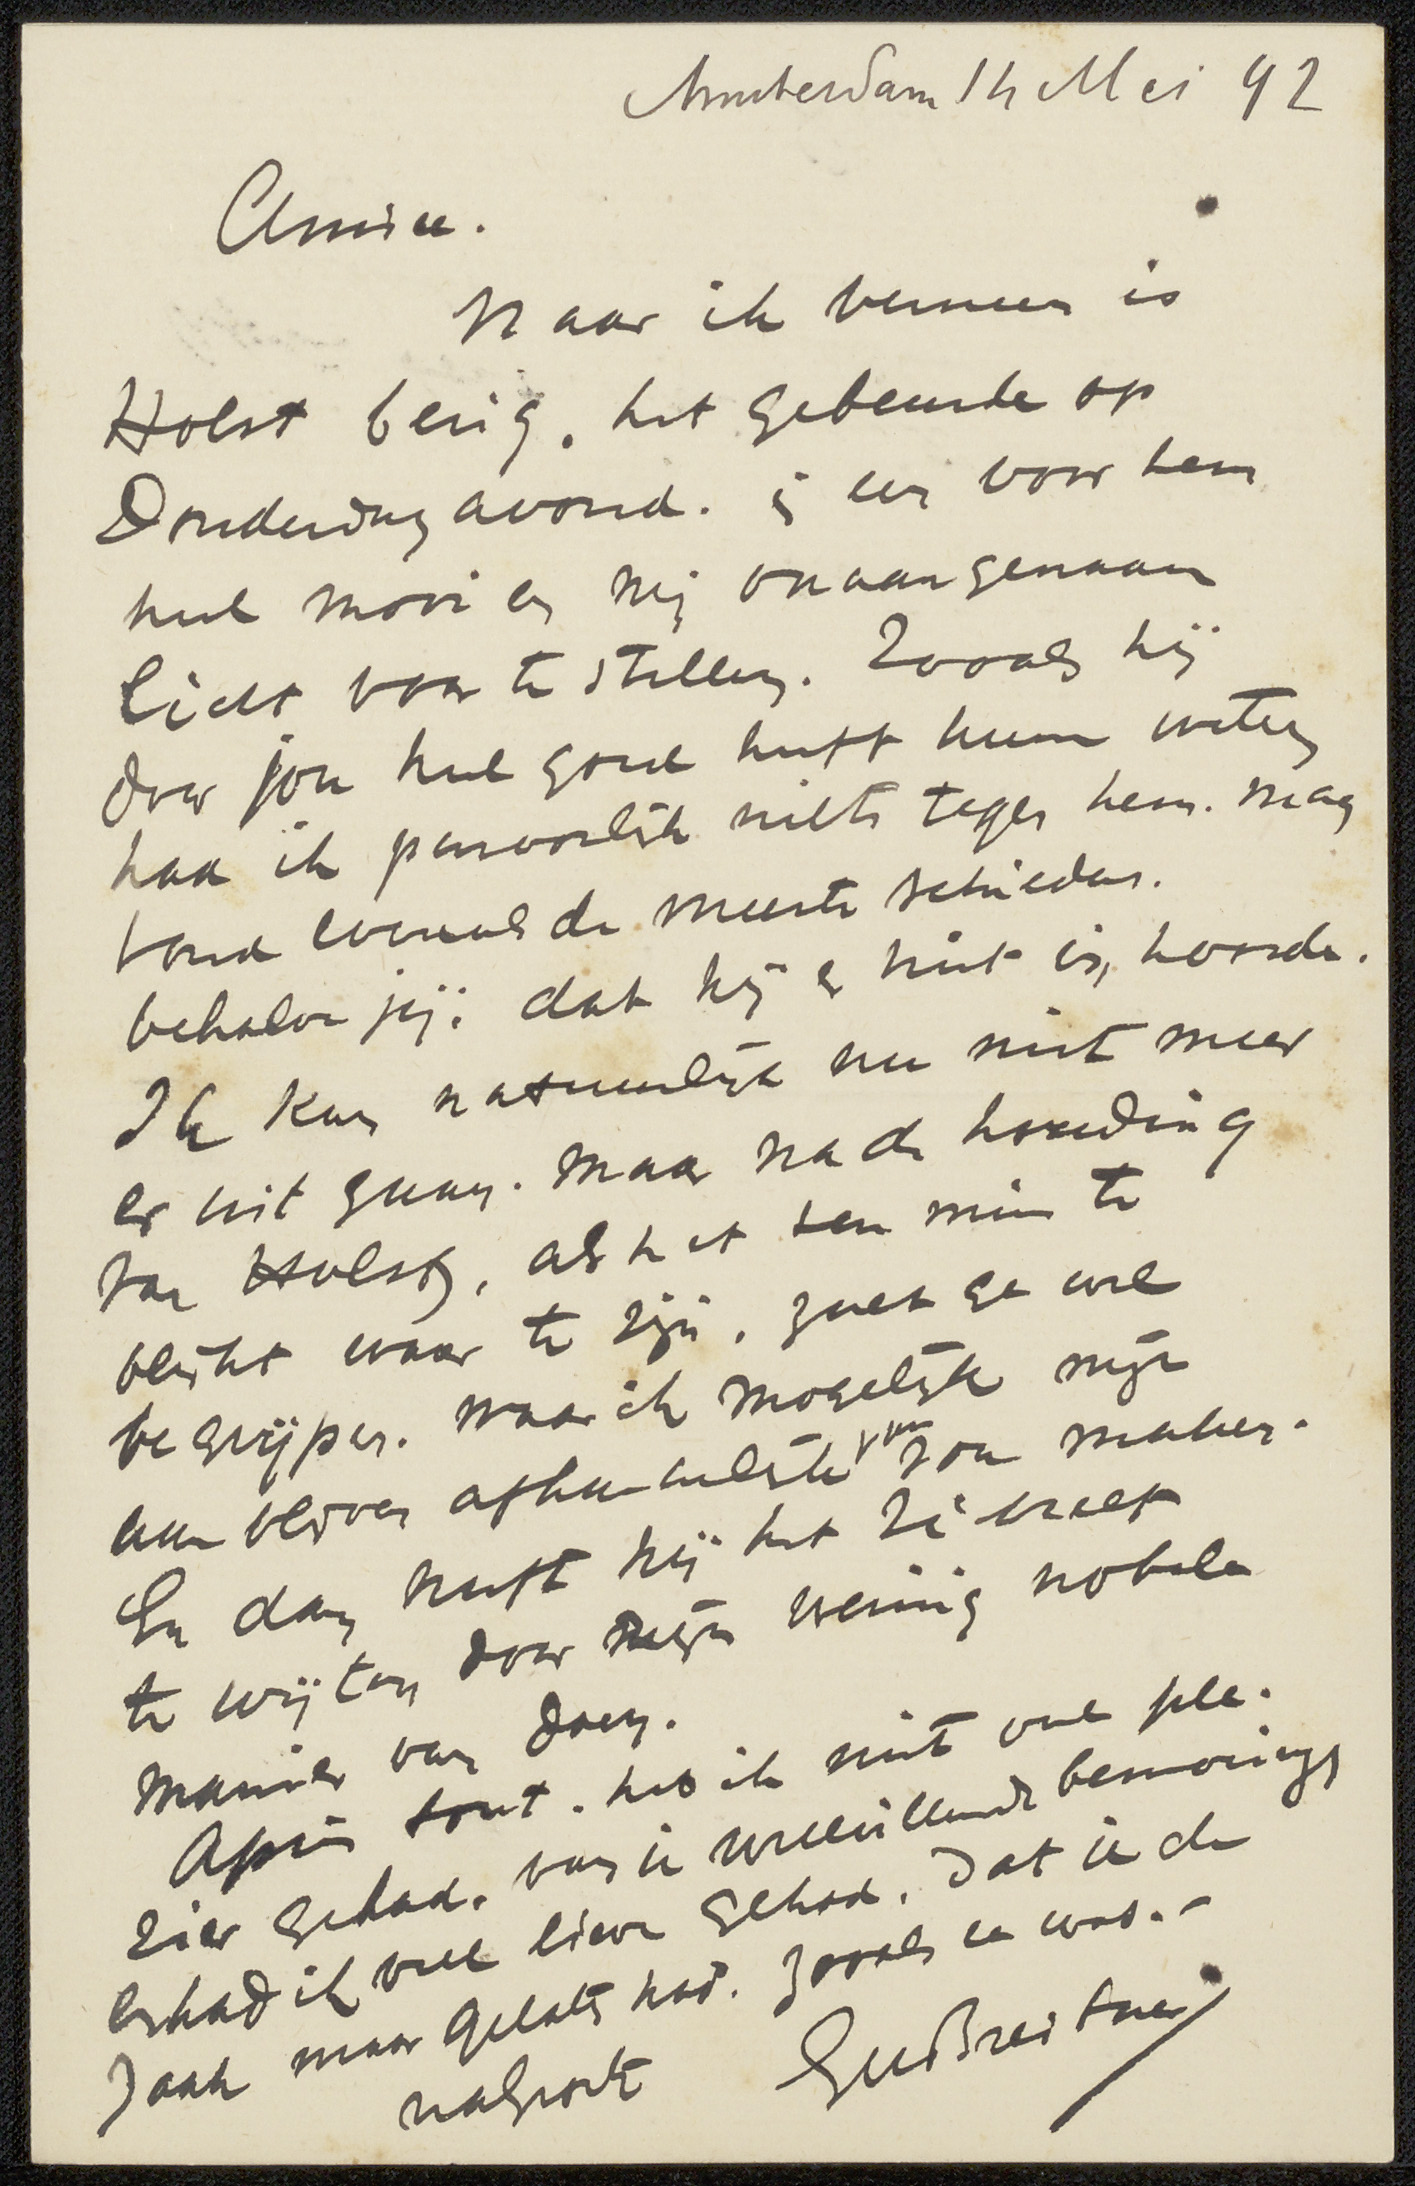 Amsterdam 14 Mei 92
Amice.
Naar ik verneem is
Holst bezig, het gebeurde op
Donderdag avond. in een voor hem
heel mooi en mij onaangenaam
licht voor te stellen. Zooals hij
door jou heel goed heeft kunnen weten
had ik persoonlijk niets tegen hem. maar
vond evenals de meeste schilders.
behalve jij. dat hij er niet in hoorde.
Ik kan natuurlijk nu niet meer
er uit gaan. maar na de houding
van Holst, als het ten min te
blijkt waar te zijn, zult ge wel
begrijpen. waar ik mogelijk mijn
aan blijven afhankelijk van zou maken.
En dan heeft hij het zichzelf
te wijten door zijn weinig nobele
manier van doen.
Après tout. heb ik niet veel ple-
zier gehad. van je welwillende bemoeiings
en had ik veel liever gehad. dat je de
zaak maar gelaten had. zooals ze was.-
nagroete GHBreitner